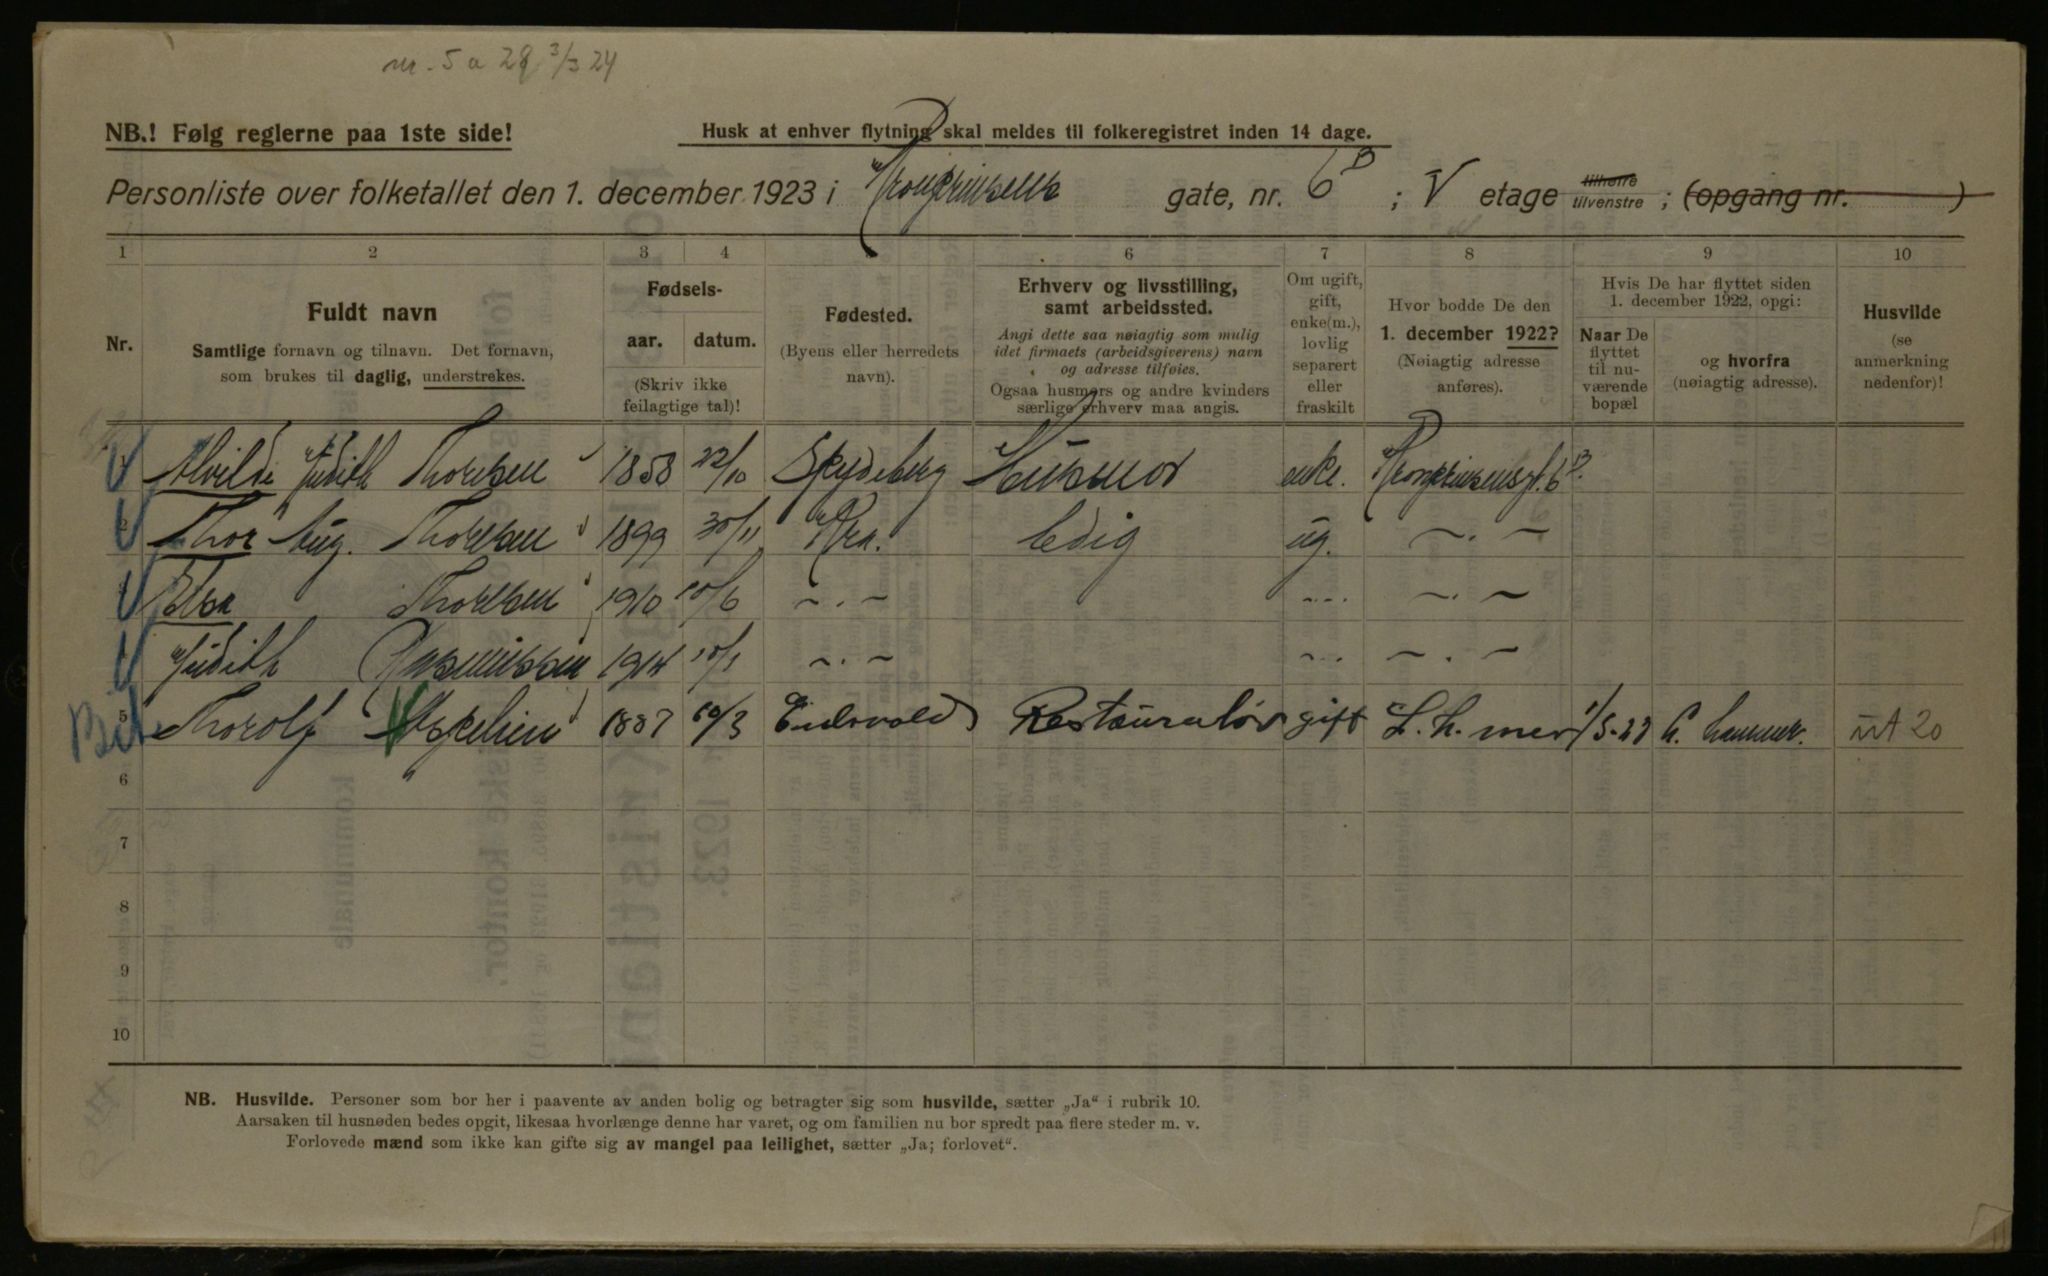 nr. 5 a 28 3/3 24
NB.! Følg reglerne paa 1ste side!
Husk at enhver flytning skal meldes til folkeregistret inden 14 dage.
Personliste over folketallet den 1. december 1923 i Kronprinsens gate, nr. 6B ; V etage tilhøire tilvenstre ; (opgang nr. )
1 2 3 4 6 7 8 9 10
Nr.
Fuldt navn
Samtlige fornavn og tilnavn. Det fornavn,
som brukes til daglig, understrekes.
Fødsels-
aar. datum.
(Skriv ikke
feilagtige tal)!
Fødested.
(Byens eller herredets
navn).
Erhverv og livsstilling,
samt arbeidssted.
Angi dette saa nøiagtig som mulig
idet firmaets (arbeidsgiverens) navn
og adresse tilføies.
Ogsaa husmørs og andre kvinders
særlige erhverv maa angis.
Om ugift,
gift,
enke(m.),
lovlig
separert
eller
fraskilt
Hvor bodde De den
1. december 1922?
(Nøiagtig adresse
anføres).
Hvis De har flyttet siden
1. december 1922, opgi:
Naar De
flyttet
til nu-
værende
bopæl
og hvorfra
(nøiagtig adresse).
Husvilde
(se
anmerkning
nedenfor)!
Alvilde Judith Thoresen 1858 22/10 Skydeberg Husmor enke. Kronprinsensgt. 6B.
2 Thor Aug. Thoresen 1899 30/11 Kra. ledig ug. — . —
Elsa Thoresen 1910 10/6 — . — — . —
Judith Rasmussen 1914 10/1 — . — — . —
5 Thorolf 1887 10/3 Eidsvold Restauratør gift 1/5-23 ut 20
6
7
8
9
10
NB. Husvilde. Personer som bor her i paavente av anden bolig og betragter sig som husvilde, sætter „Ja“ i rubrik 10.
Aarsaken til husnøden bedes opgit, likesaa hvorlænge denne har varet, og om familien nu bor spredt paa flere steder m. v.
Forlovede mænd som ikke kan gifte sig av mangel paa leilighet, sætter „Ja; forlovet“.